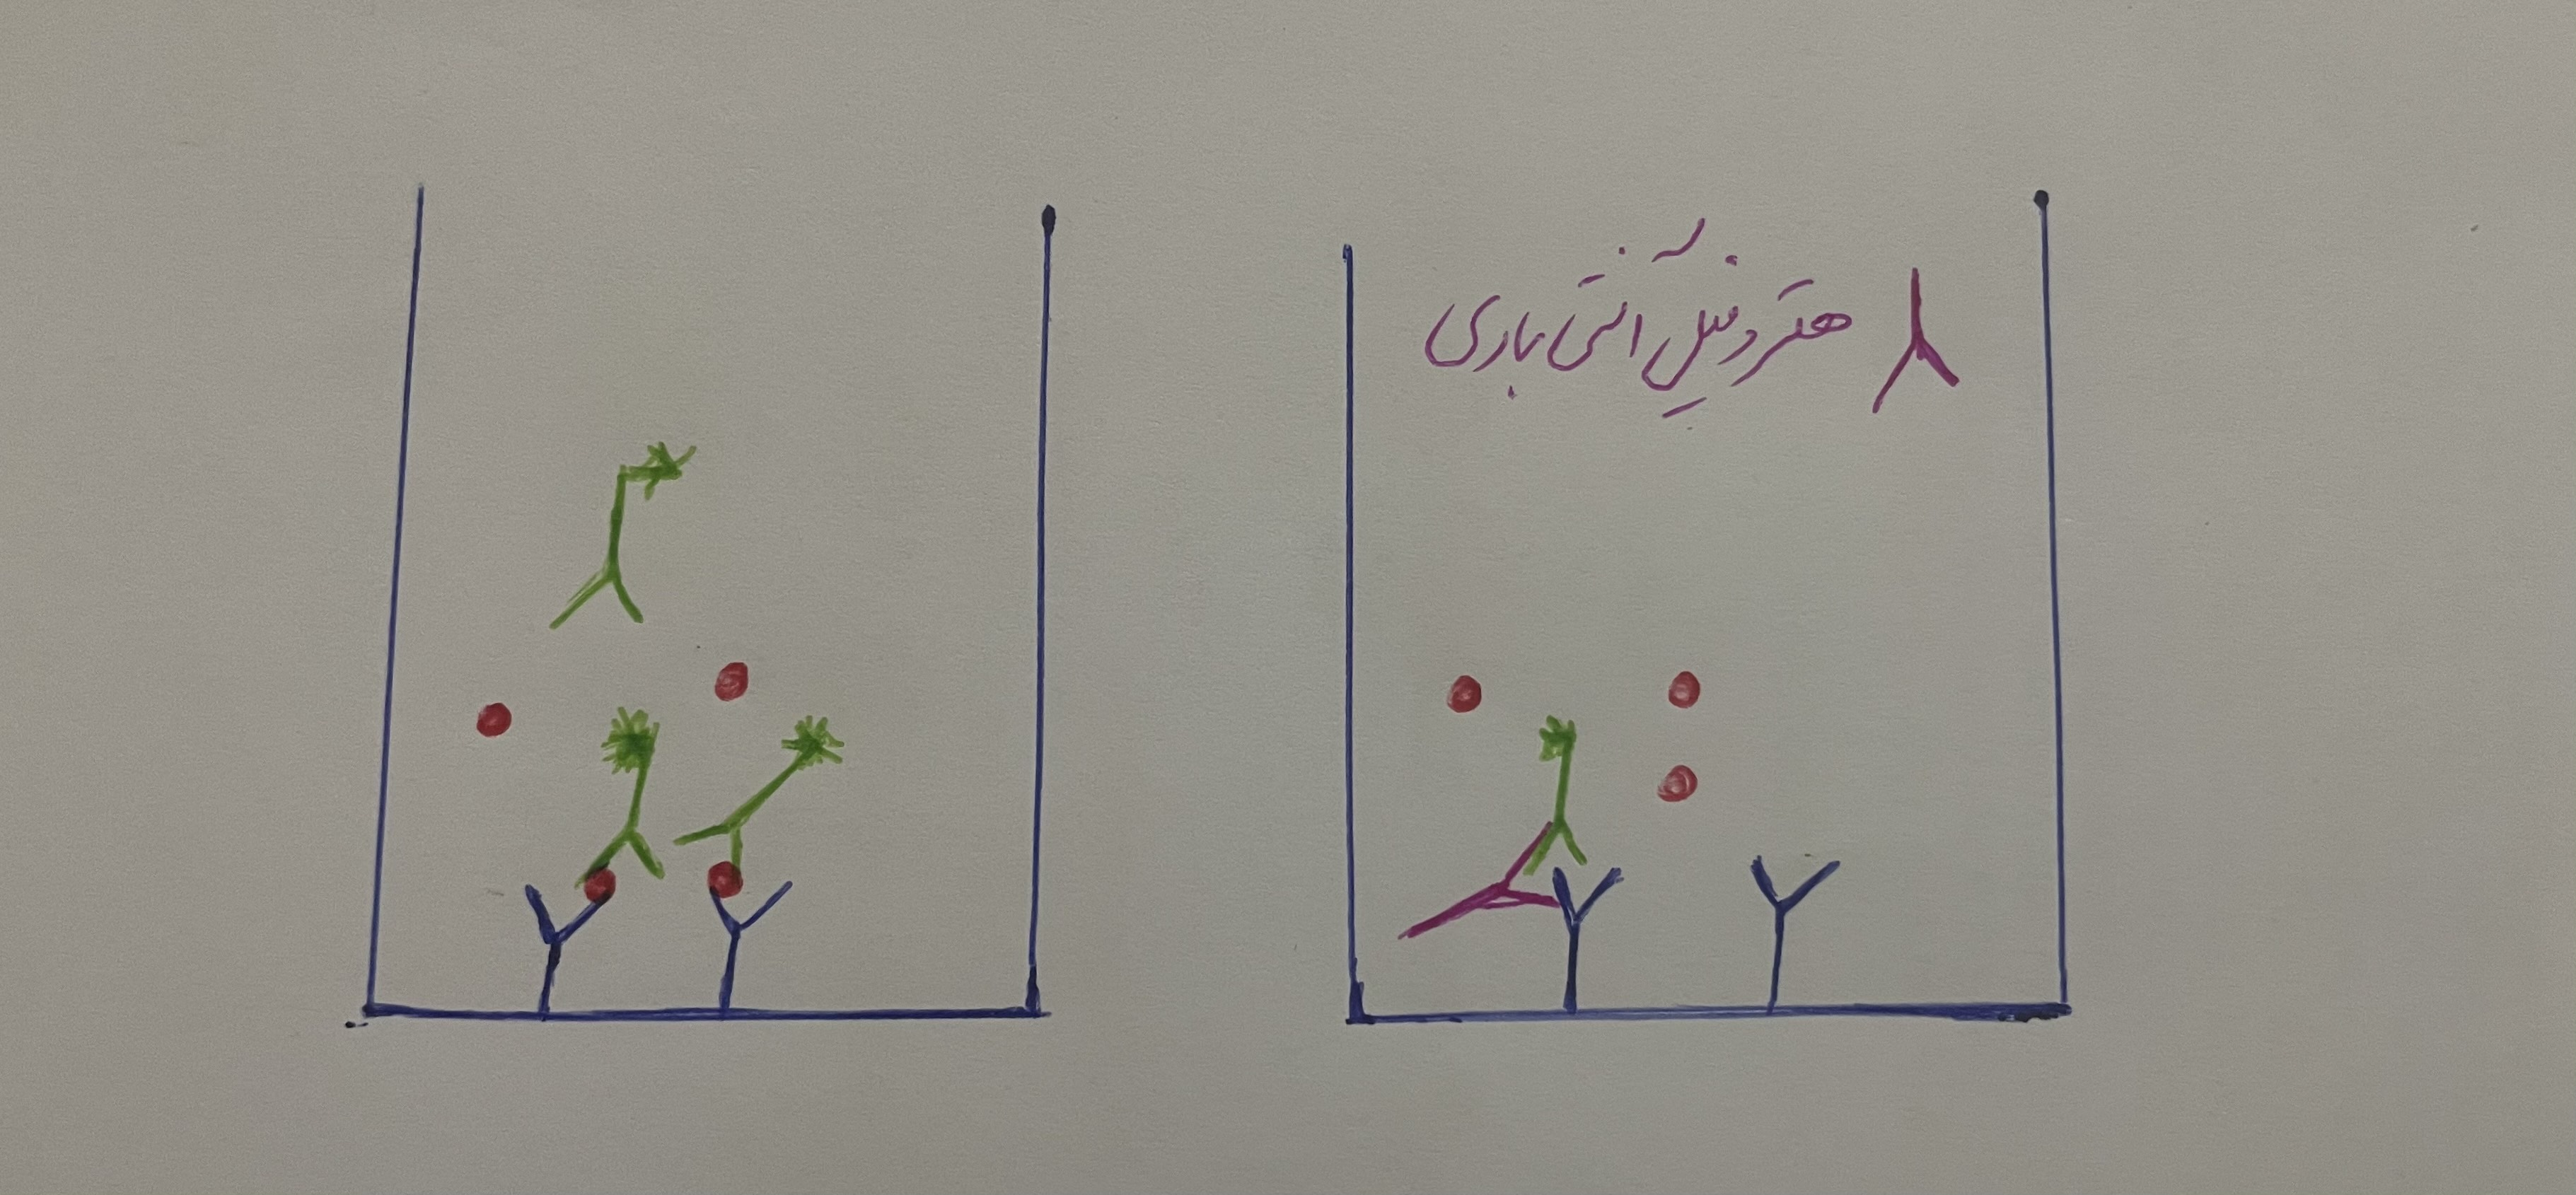 هتروفیل آنتی بادی